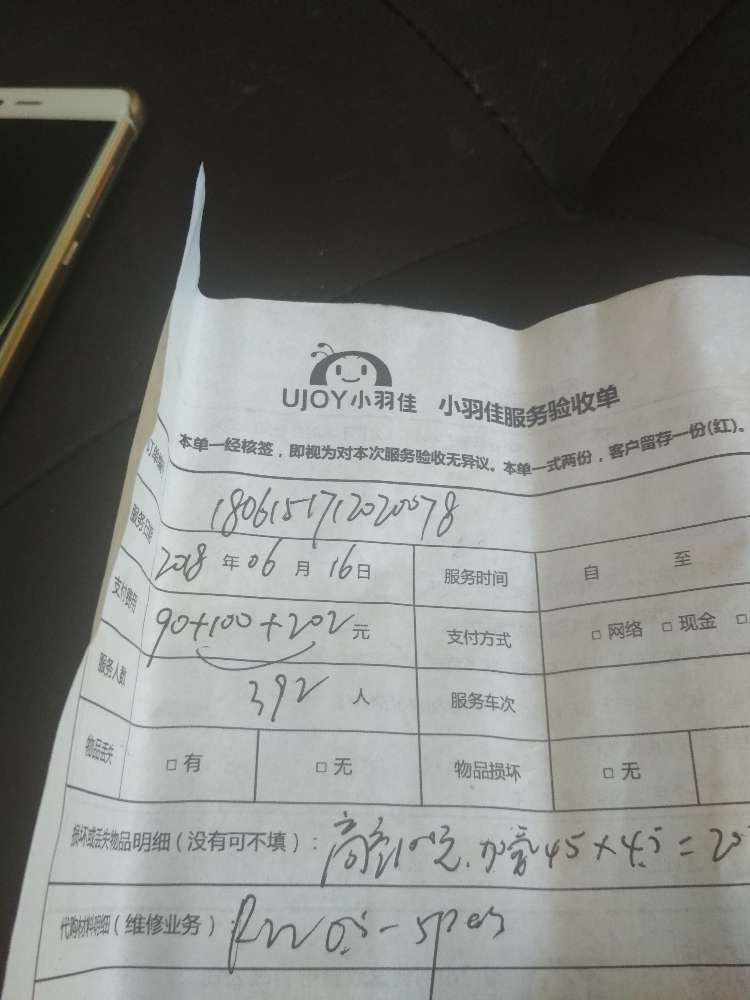 UJOY小羽佳 小羽佳服务验收单
本单一经核签，即视为对本次服务验收无异议。本单一式两份，客户留存一份(红)。
1806151712020078
服务日期 2018 年 06 月 16 日 服务时间 自 至
支付费用 90+100+202 元 支付方式 □ 网络 □ 现金 □
服务人数 392 人 服务车次
物品丢失 □ 有 □ 无 物品损坏 □ 无
损坏或丢失物品明细（没有可不填）： 高空100元. 加 45×4.5=20
代购材料明细（维修业务）：